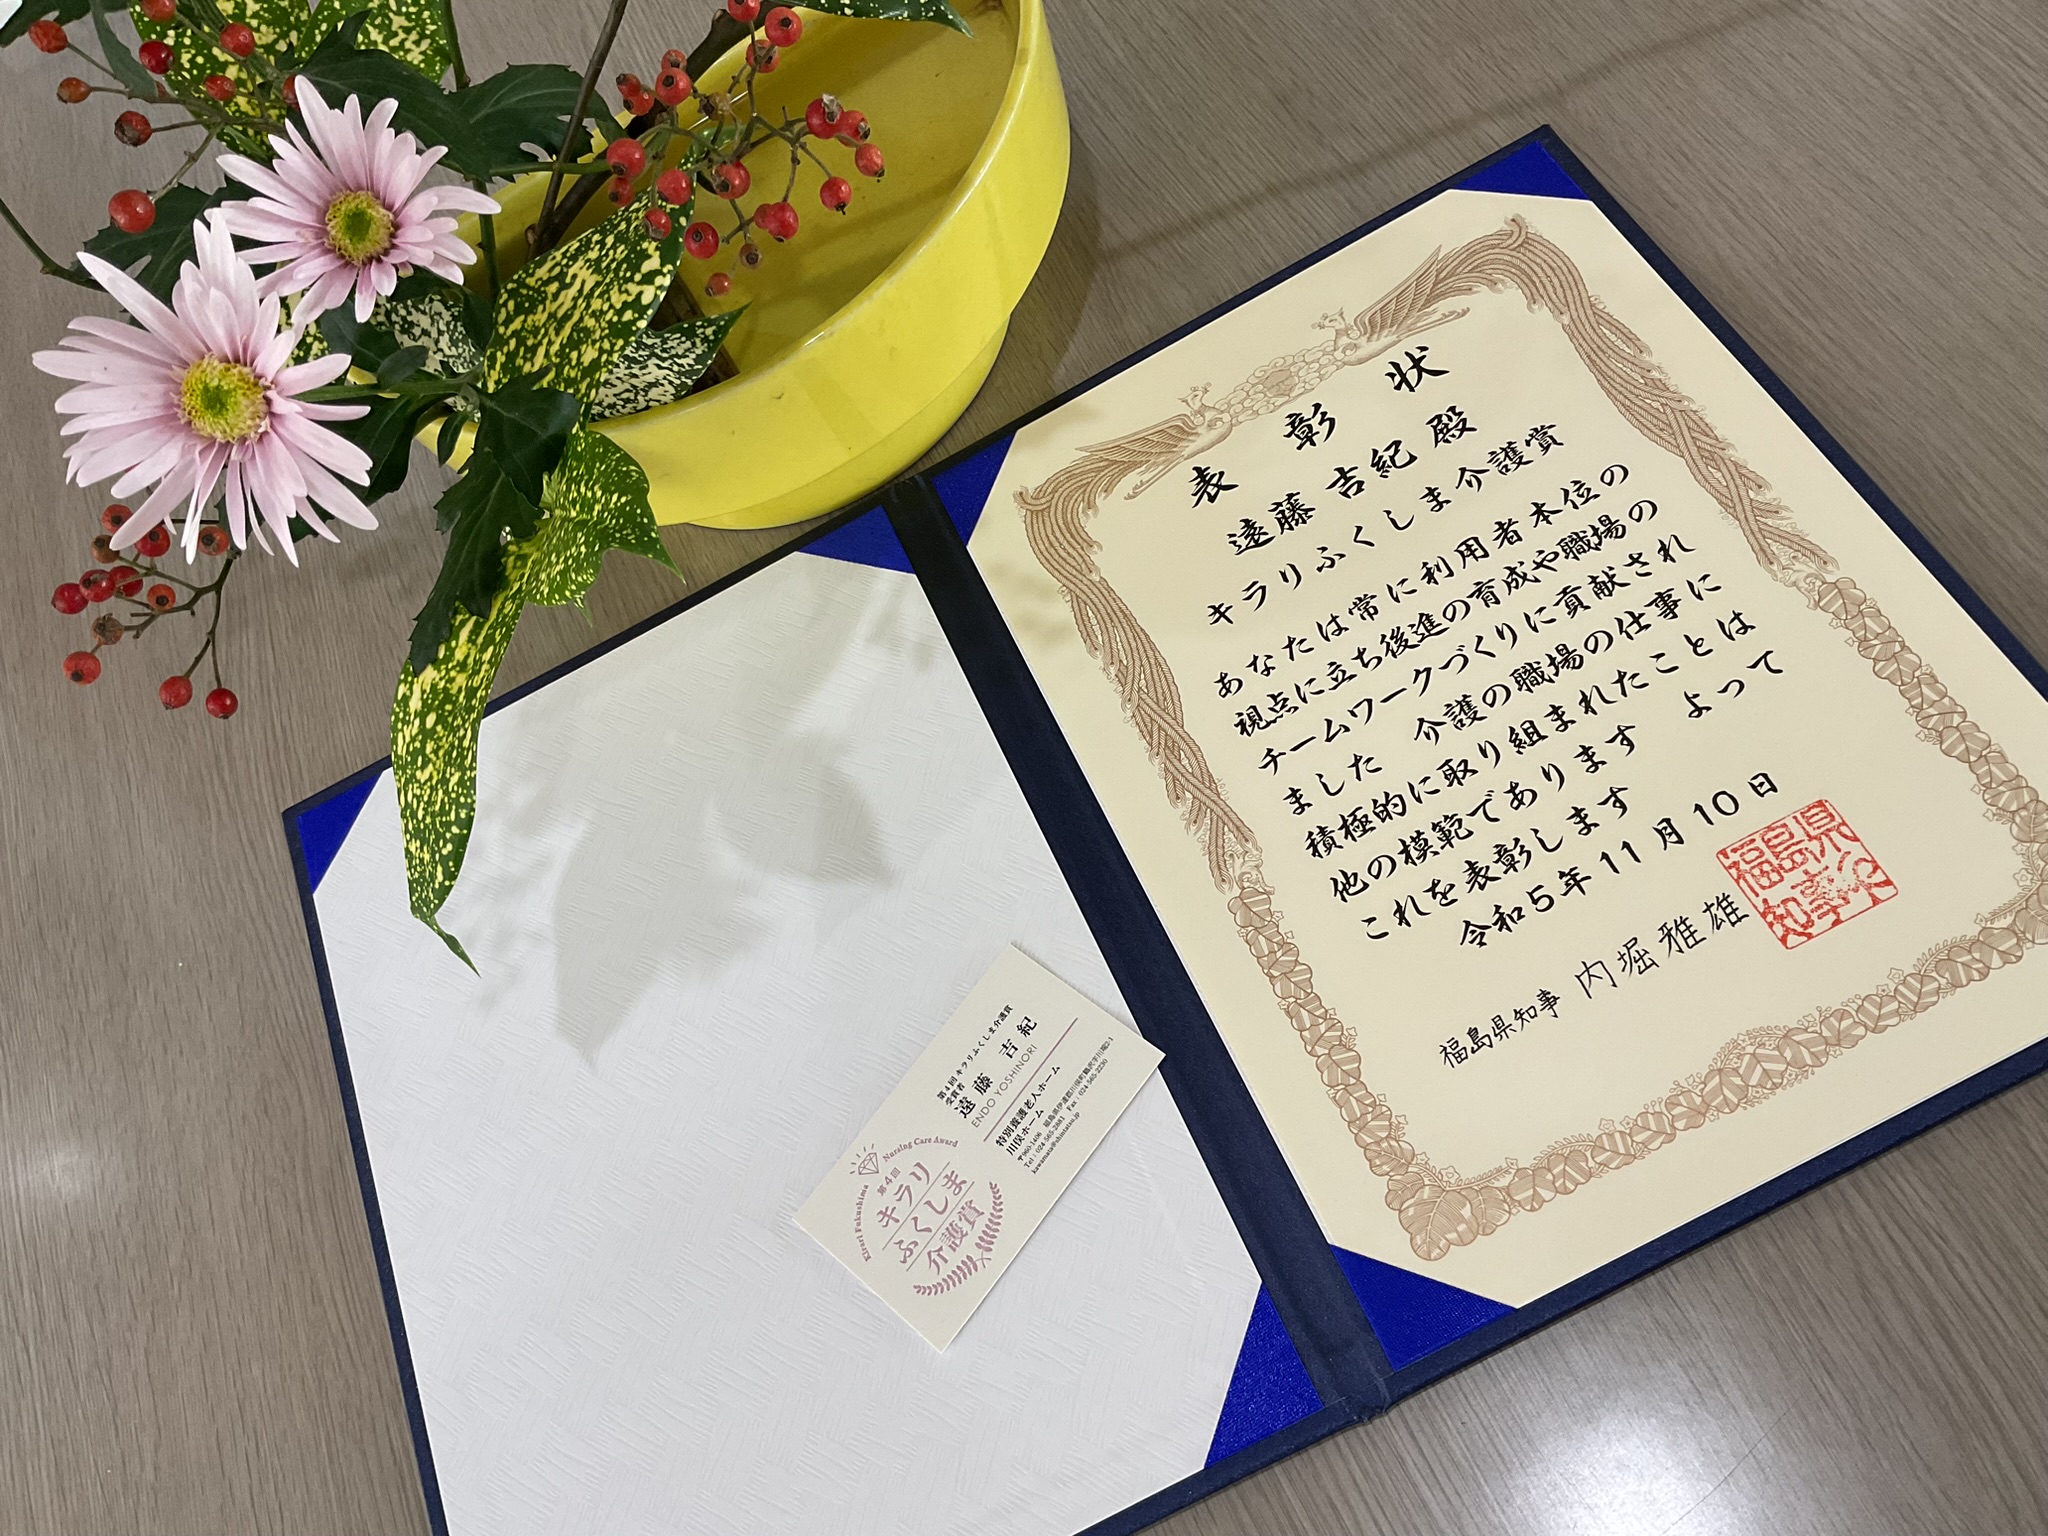 表彰状
遠藤 吉紀 殿
キラリふくしま介護賞
あなたは常に利用者本位の
視点に立ち後進の育成や職場の
チームワークづくりに貢献され
ました 介護の職場の仕事に
積極的に取り組まれたことは
他の模範であります よって
これを表彰します
令和5年11月10日
福島県知事 内堀雅雄
福島県
知事
第4回キラリふくしま介護賞
受賞者
遠藤 吉紀
ENDO YOSHINORI
特別養護老人ホーム
川俣ホーム
〒960-1406 福島県伊達郡川俣町鶴沢字川端2-1
Tel：024-565-2681 Fax：024-565-2230
Kirari Fukushima Nursing Care Award
第4回
キラリ
ふくしま
介護賞